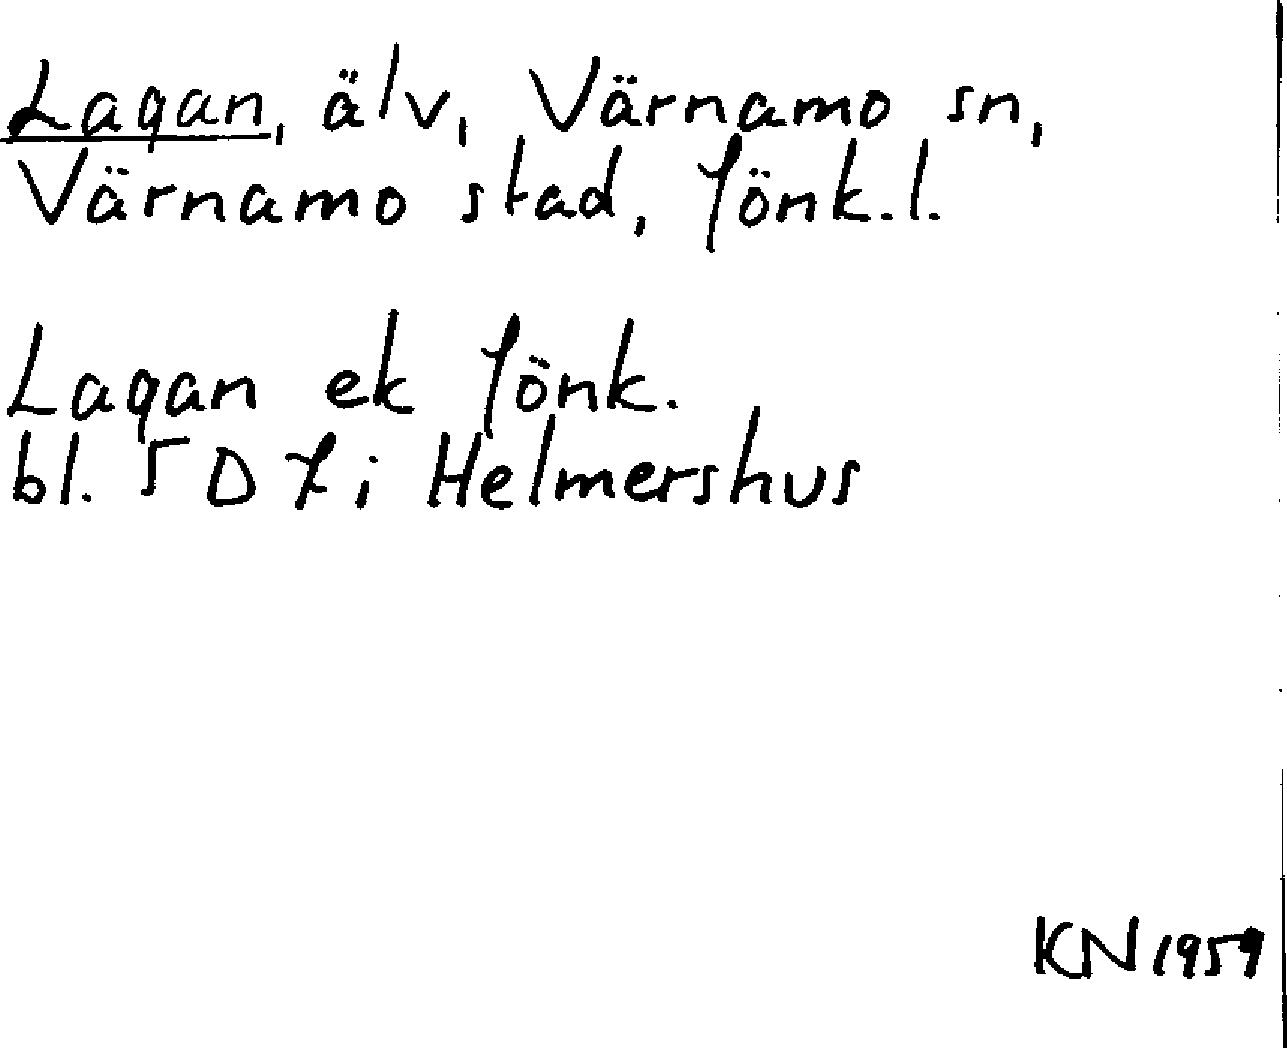 Lagan, älv, Värnamo sn,
Värnamo stad, Jönk.l.
Lagan ek Jönk.
bl. 5 D 7 i Helmershus
KN 1959